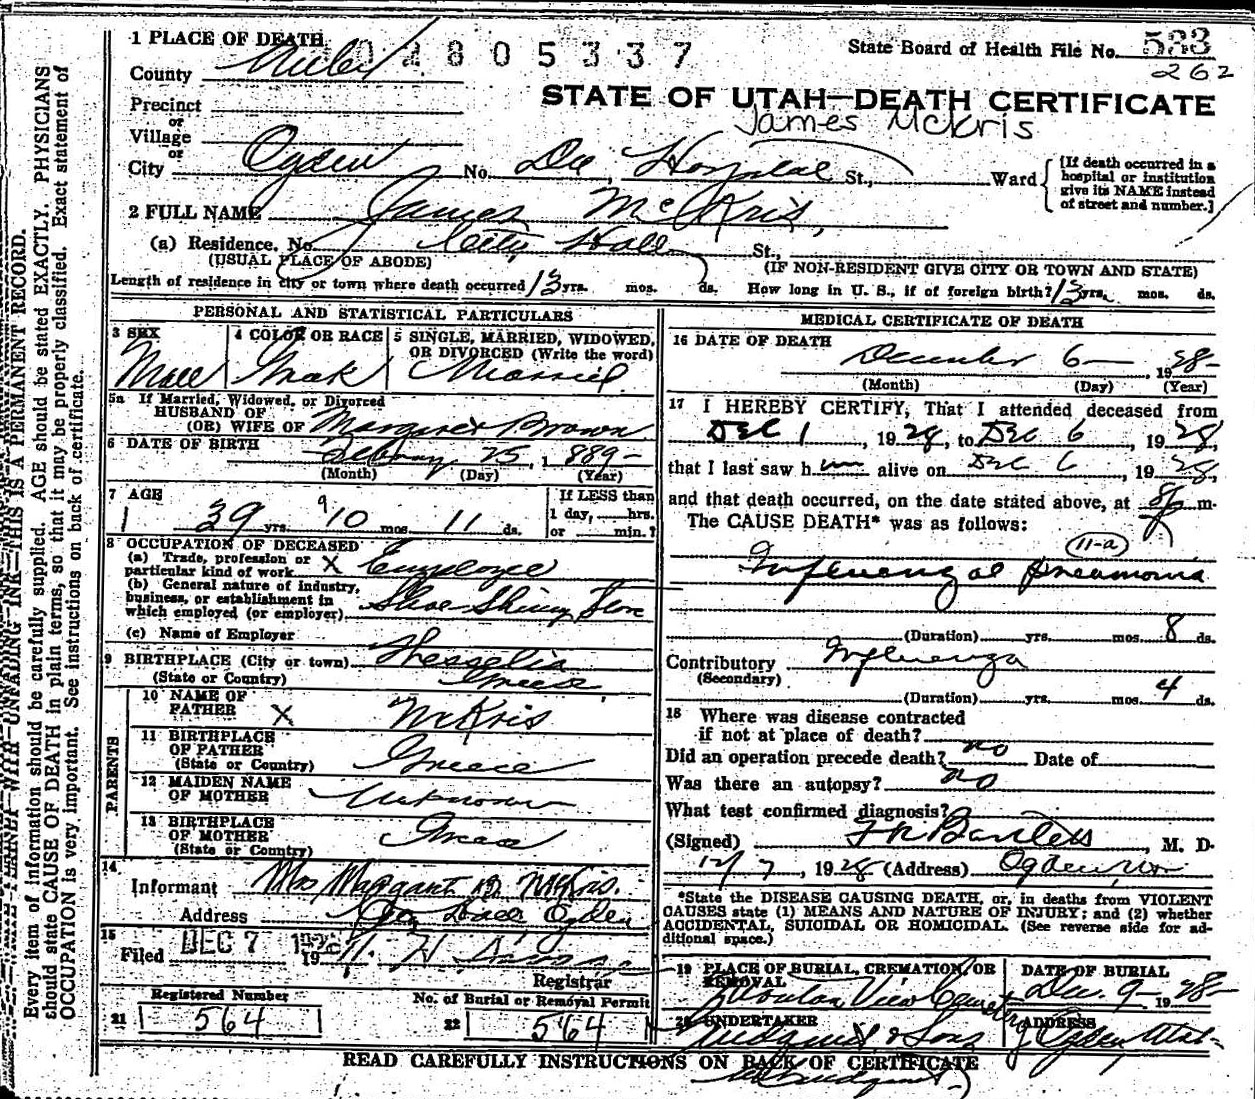 1 PLACE OF DEATH
02805337
State Board of Health File No. 533
262
County Weber
STATE OF UTAH—DEATH CERTIFICATE
Precinct
or
Village
James McKris
or
City Ogden No. Dee Hospital St., Ward
[If death occurred in a hospital or institution give its NAME instead of street and number.]
2 FULL NAME James McKris,
(a) Residence. No. City Hall St.,
(USUAL PLACE OF ABODE) (IF NON-RESIDENT GIVE CITY OR TOWN AND STATE)
Length of residence in city or town where death occurred 13 yrs. mos. ds. How long in U. S., if of foreign birth? 13 yrs. mos. ds.
PERSONAL AND STATISTICAL PARTICULARS
3 SEX
Male
4 COLOR OR RACE
Greek
5 SINGLE, MARRIED, WIDOWED, OR DIVORCED (Write the word)
Married
5a If Married, Widowed, or Divorced
HUSBAND OF
(OR) WIFE OF Margaret Brown
6 DATE OF BIRTH
Febuary 25, 1889-
(Month) (Day) (Year)
7 AGE
39 yrs. 9 10 mos. 11 ds.
If LESS than
1 day, hrs.
or min.?
8 OCCUPATION OF DECEASED
(a) Trade, profession or
particular kind of work X Employee
(b) General nature of industry,
business, or establishment in
which employed (or employer) Shoe Shining Store
(c) Name of Employer
9 BIRTHPLACE (City or town) Thesselia
(State or Country) Greece,
PARENTS
10 NAME OF
FATHER X McKris
11 BIRTHPLACE
OF FATHER
(State or Country) Greece
12 MAIDEN NAME
OF MOTHER Unknown
13 BIRTHPLACE
OF MOTHER
(State or Country) Greece
14
Informant Mrs Margaret B. McKris.
Address Ogden
15
Filed DEC 7 1928 19
Registrar
Registered Number
21 564
No. of Burial or Removal Permit
22 564
MEDICAL CERTIFICATE OF DEATH
16 DATE OF DEATH
December 6— , 1928-
(Month) (Day) (Year)
17 I HEREBY CERTIFY, That I attended deceased from
DEC 1, 1928, to DEC 6, 1928,
that I last saw him alive on DEC 6, 1928,
and that death occurred, on the date stated above, at 8 p m.
The CAUSE DEATH* was as follows:
11-a
Influenzal pneumonia
(Duration) yrs. mos. 8 ds.
Contributory Influenza
(Secondary)
(Duration) yrs. mos. 4 ds.
18 Where was disease contracted
if not at place of death?
Did an operation precede death? no Date of
Was there an autopsy? no
What test confirmed diagnosis?
(Signed) F R Bartlett, M. D.
12/7, 1928 (Address) Ogden,
*State the DISEASE CAUSING DEATH, or, in deaths from VIOLENT
CAUSES state (1) MEANS AND NATURE OF INJURY; and (2) whether
ACCIDENTAL, SUICIDAL OR HOMICIDAL. (See reverse side for ad-
ditional space.)
19 PLACE OF BURIAL, CREMATION, OR REMOVAL
Mountan View Cemetery
DATE OF BURIAL
Dec. 9- 1928-
20 UNDERTAKER
& Sons
ADDRESS
Ogden Utah-
READ CAREFULLY INSTRUCTIONS ON BACK OF CERTIFICATE
Every item of information should be carefully supplied. AGE should be stated EXACTLY. PHYSICIANS
should state CAUSE OF DEATH in plain terms, so that it may be properly classified. Exact statement of
OCCUPATION is very important. See instructions on back of certificate.
WITH UNFADING INK—THIS IS A PERMANENT RECORD.